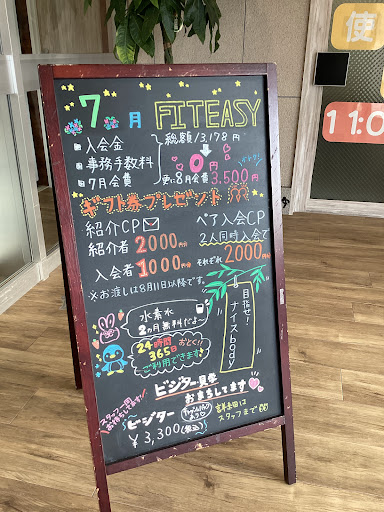 7月 FITEASY
入会金
事務手数料
7月会費
総額13,178円
0円
更に8月会費3,500円
ギフト券プレゼント
紹介CP
紹介者2000円分
入会者1000円分
※お渡しは8月11日以降です。
ペア入会CP
2人同時入会で
それぞれ2000円分
目指せ!
ナイスbody
水素水
2ヵ月無料だよ〜
24時間
365日
おとく!!
ご利用できます
ビジター見学
お待ちしてます
スタッフ一同
お待ちしてます!!
ビジター
¥3,300(税込)
スタッフまで
使
11:0